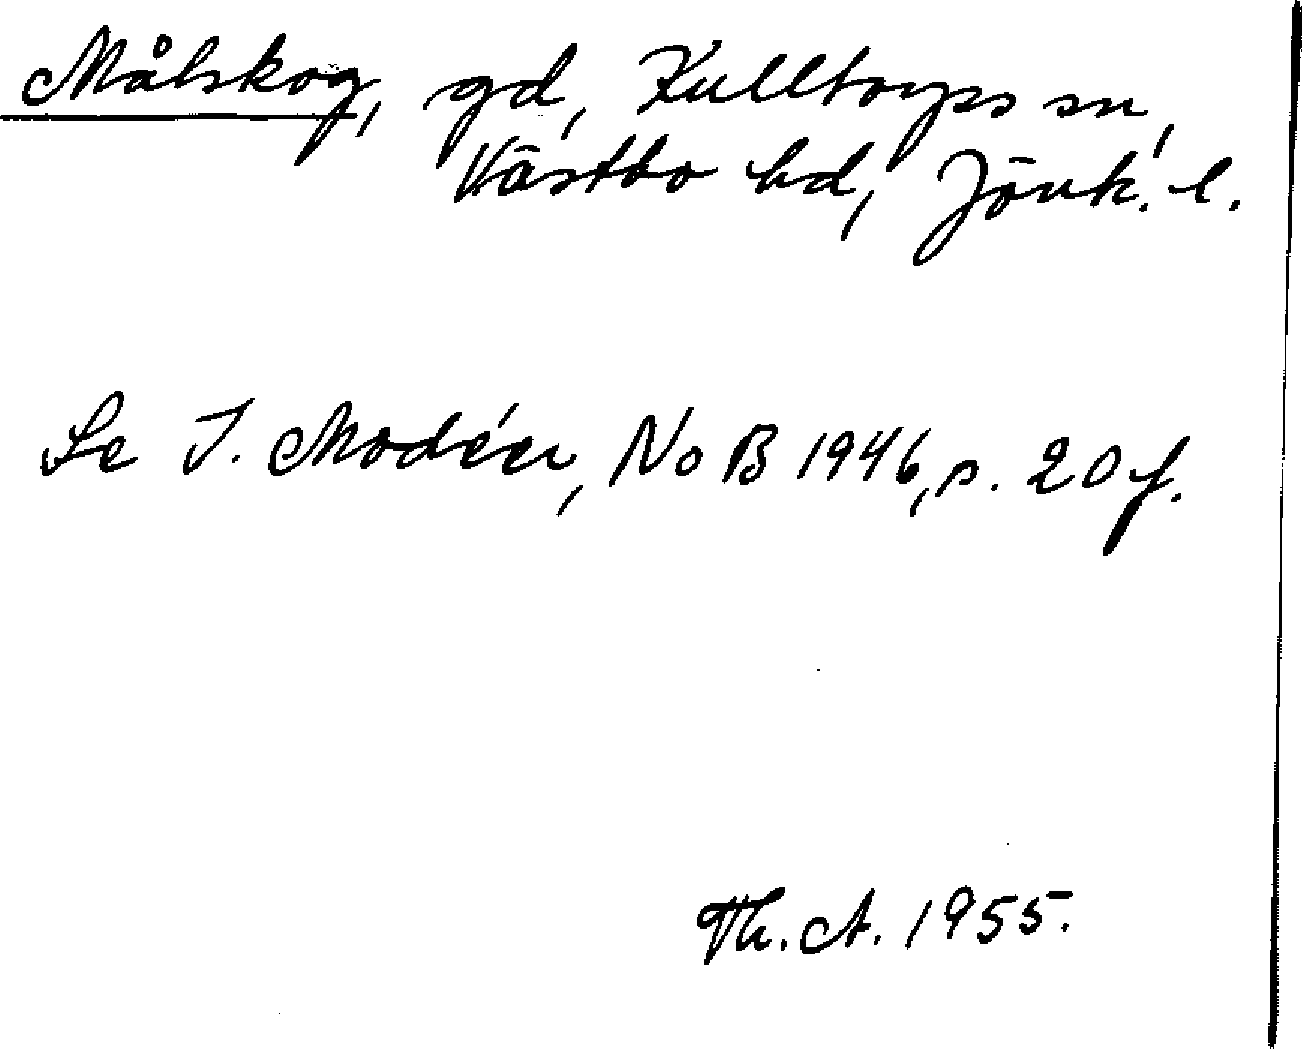 Målskog, gd, Kulltorps sn,
Västbo hd, Jönk. l.
Se I. Modéer, NoB 1946, s. 20 f.
Th. A. 1955.